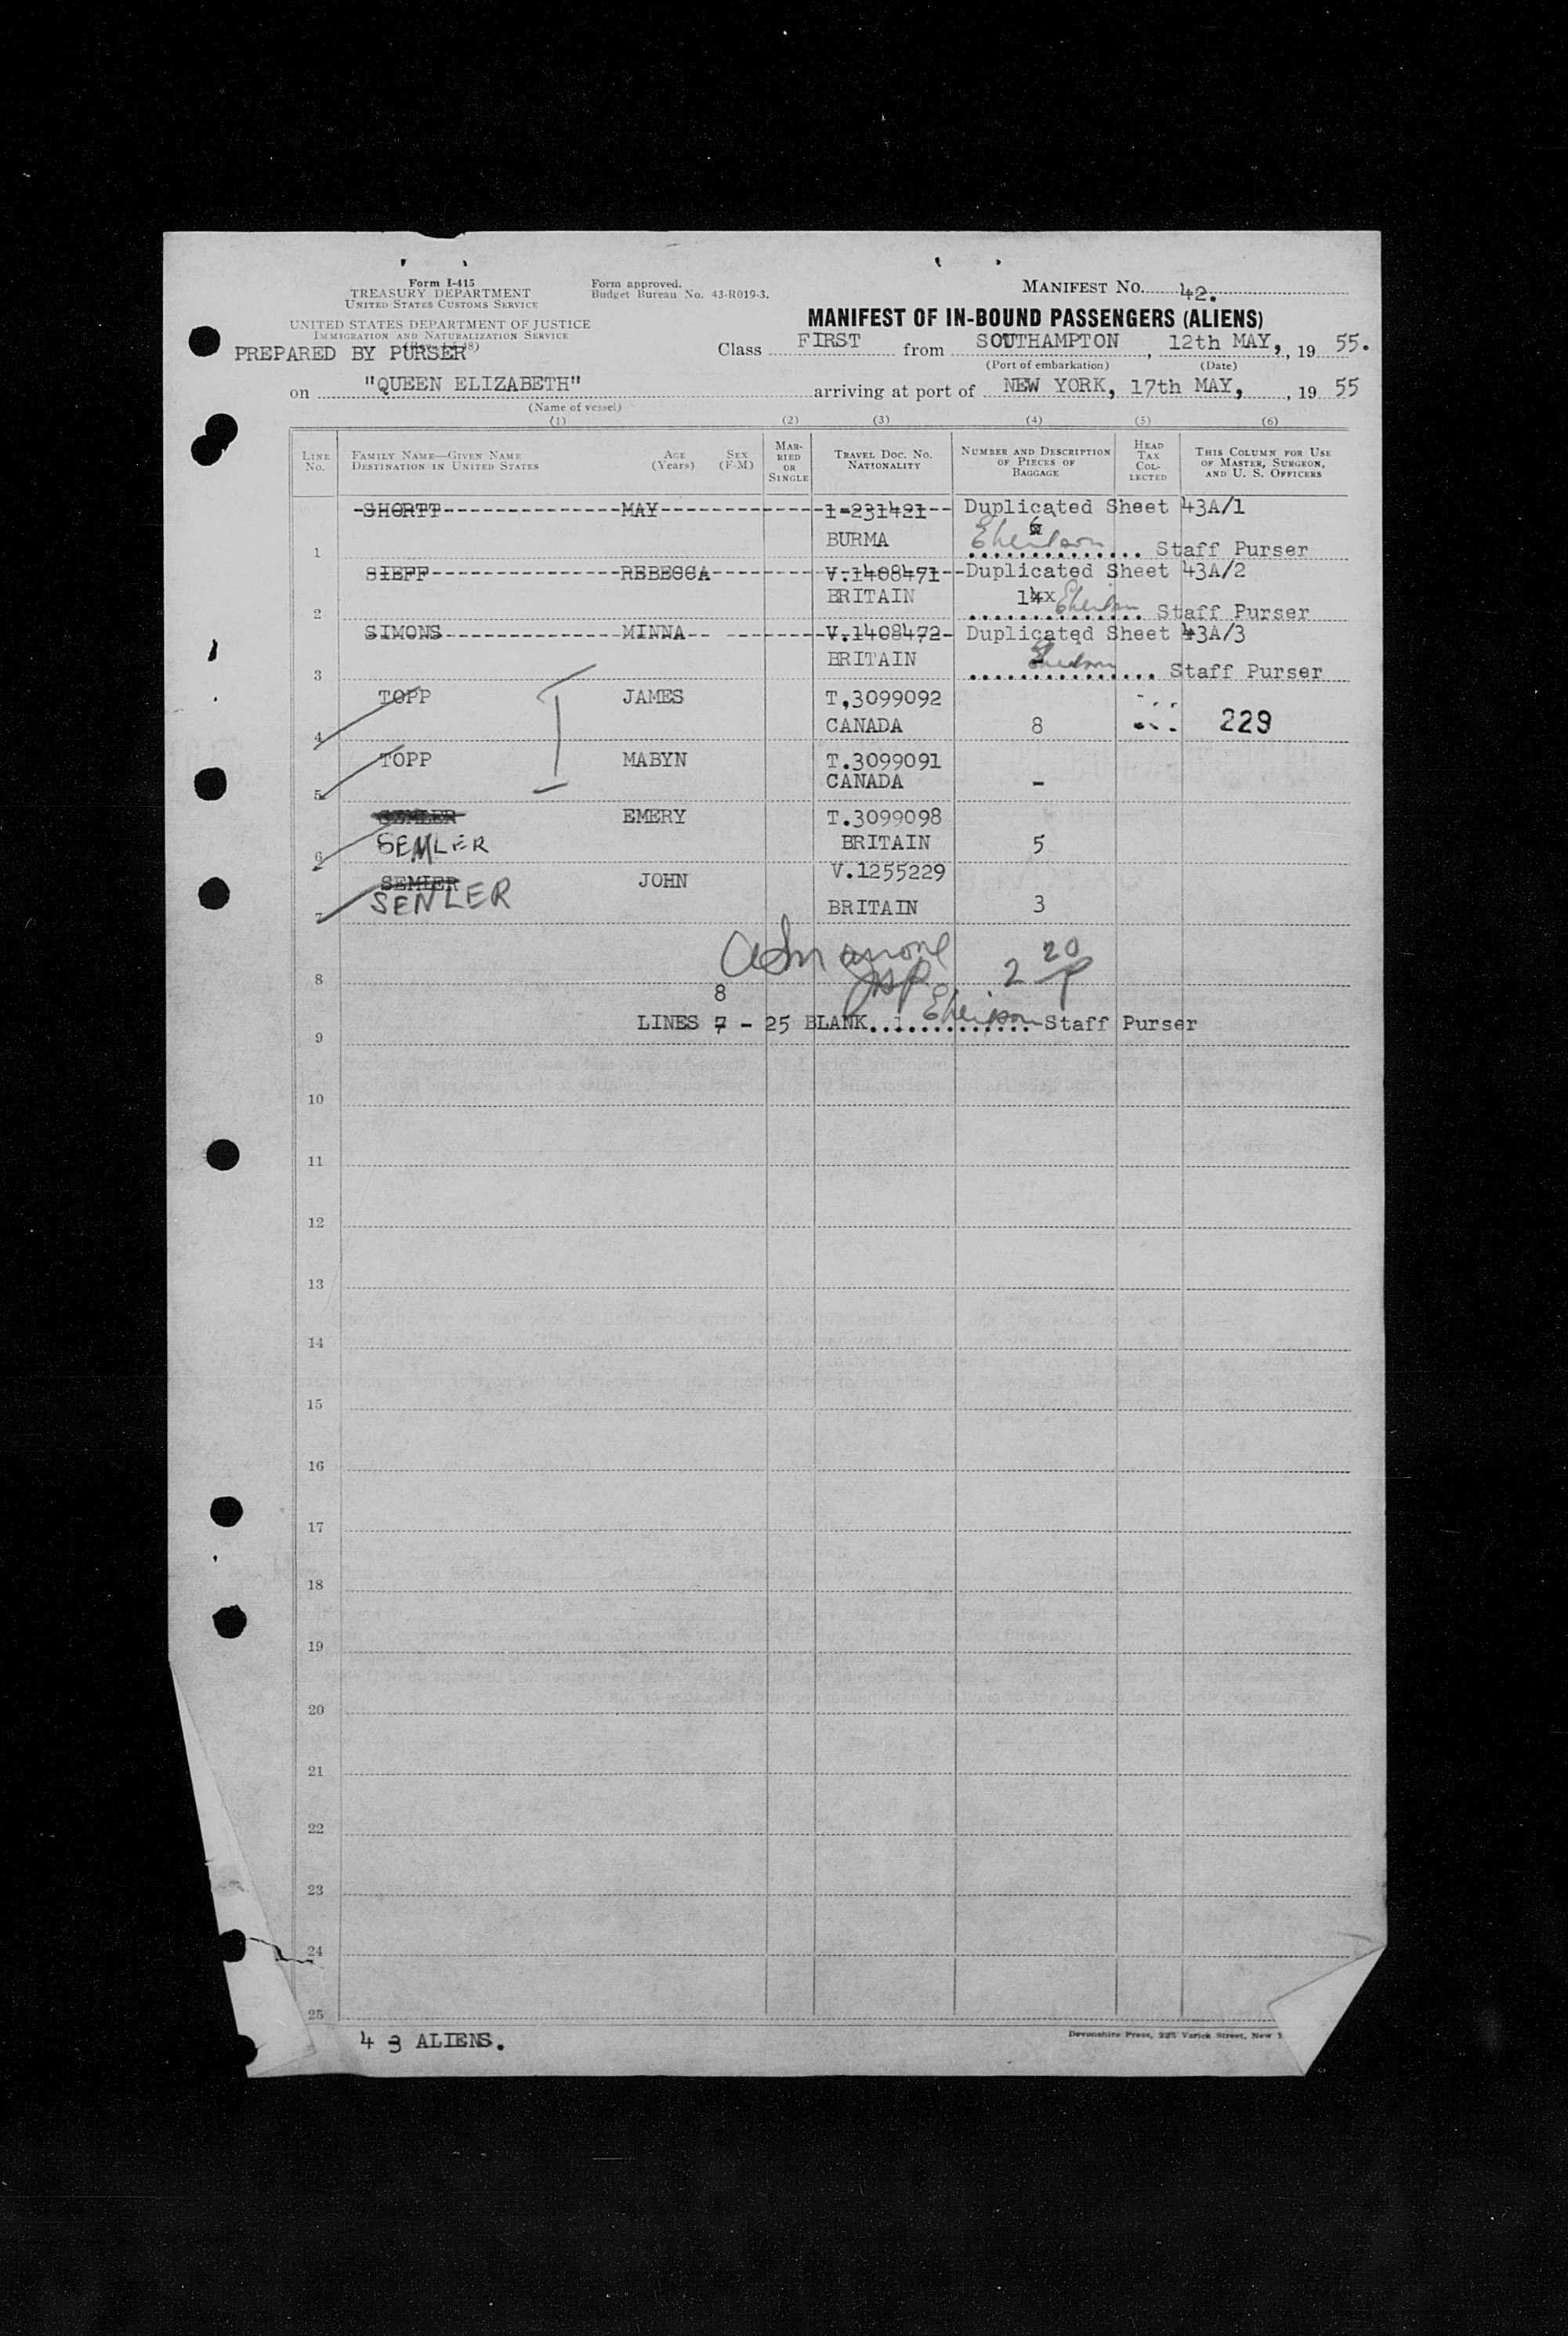 Form I-415
TREASURY DEPARTMENT
UNITED STATES CUSTOMS SERVICE
Form approved.
Budget Bureau No. 43-R019-3.
MANIFEST NO. 42.
UNITED STATES DEPARTMENT OF JUSTICE
IMMIGRATION AND NATURALIZATION SERVICE
MANIFEST OF IN-BOUND PASSENGERS (ALIENS)
PREPARED BY PURSER
Class FIRST from SOUTHAMPTON, 12th MAY, , 19 55.
(Port of embarkation) (Date)
on "QUEEN ELIZABETH" arriving at port of NEW YORK, 17th MAY, , 19 55
(Name of vessel)
(1) (2) (3) (4) (5) (6)
LINE NO. FAMILY NAME—GIVEN NAME DESTINATION IN UNITED STATES AGE (Years) SEX (F-M) MARRIED OR SINGLE TRAVEL DOC. NO. NATIONALITY NUMBER AND DESCRIPTION OF PIECES OF BAGGAGE HEAD TAX COLLECTED THIS COLUMN FOR USE OF MASTER, SURGEON, AND U. S. OFFICERS
SHORTT MAY 1-231421 Duplicated Sheet 43A/1
1 BURMA Staff Purser
SIEFF REBECCA V.1408471 Duplicated Sheet 43A/2
2 BRITAIN 14x Staff Purser
SIMONS MINNA V.1408472 Duplicated Sheet 43A/3
3 BRITAIN Staff Purser
TOPP JAMES T,3099092
4 CANADA 8 229
TOPP MABYN T.3099091
5 CANADA -
SEMLER EMERY T.3099098
6 SEMLER BRITAIN 5
SEMLER JOHN V.1255229
7 SENLER BRITAIN 3
8 2 20
8
LINES 7 - 25 BLANK Staff Purser
9
10
11
12
13
14
15
16
17
18
19
20
21
22
23
24
25
4 3 ALIENS.
Devonshire Press, 225 Varick Street, New